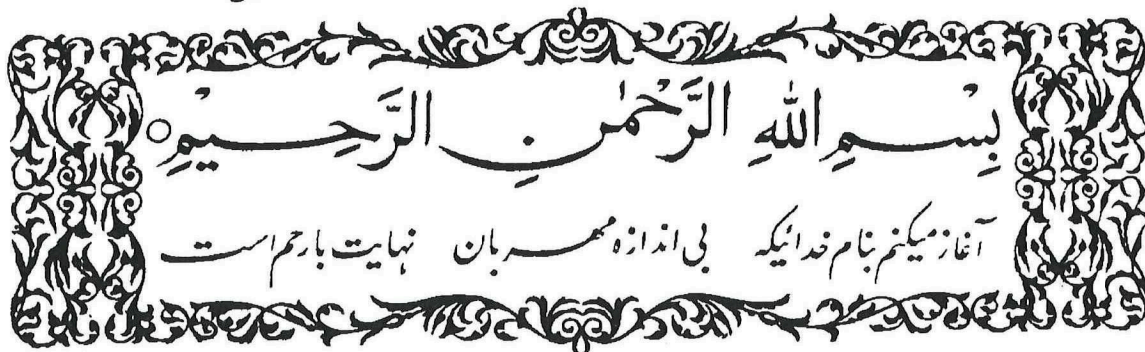 بِسْمِ اللّٰهِ الرَّحْمٰنِ الرَّحِیْمِ ○
آغاز میکنم بنام خدائیکه بی اندازه مهربان نهایت بارحم است